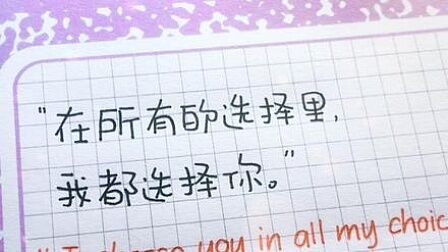 "在所有的选择里,
我都选择你。"
" I choose you in all my choic